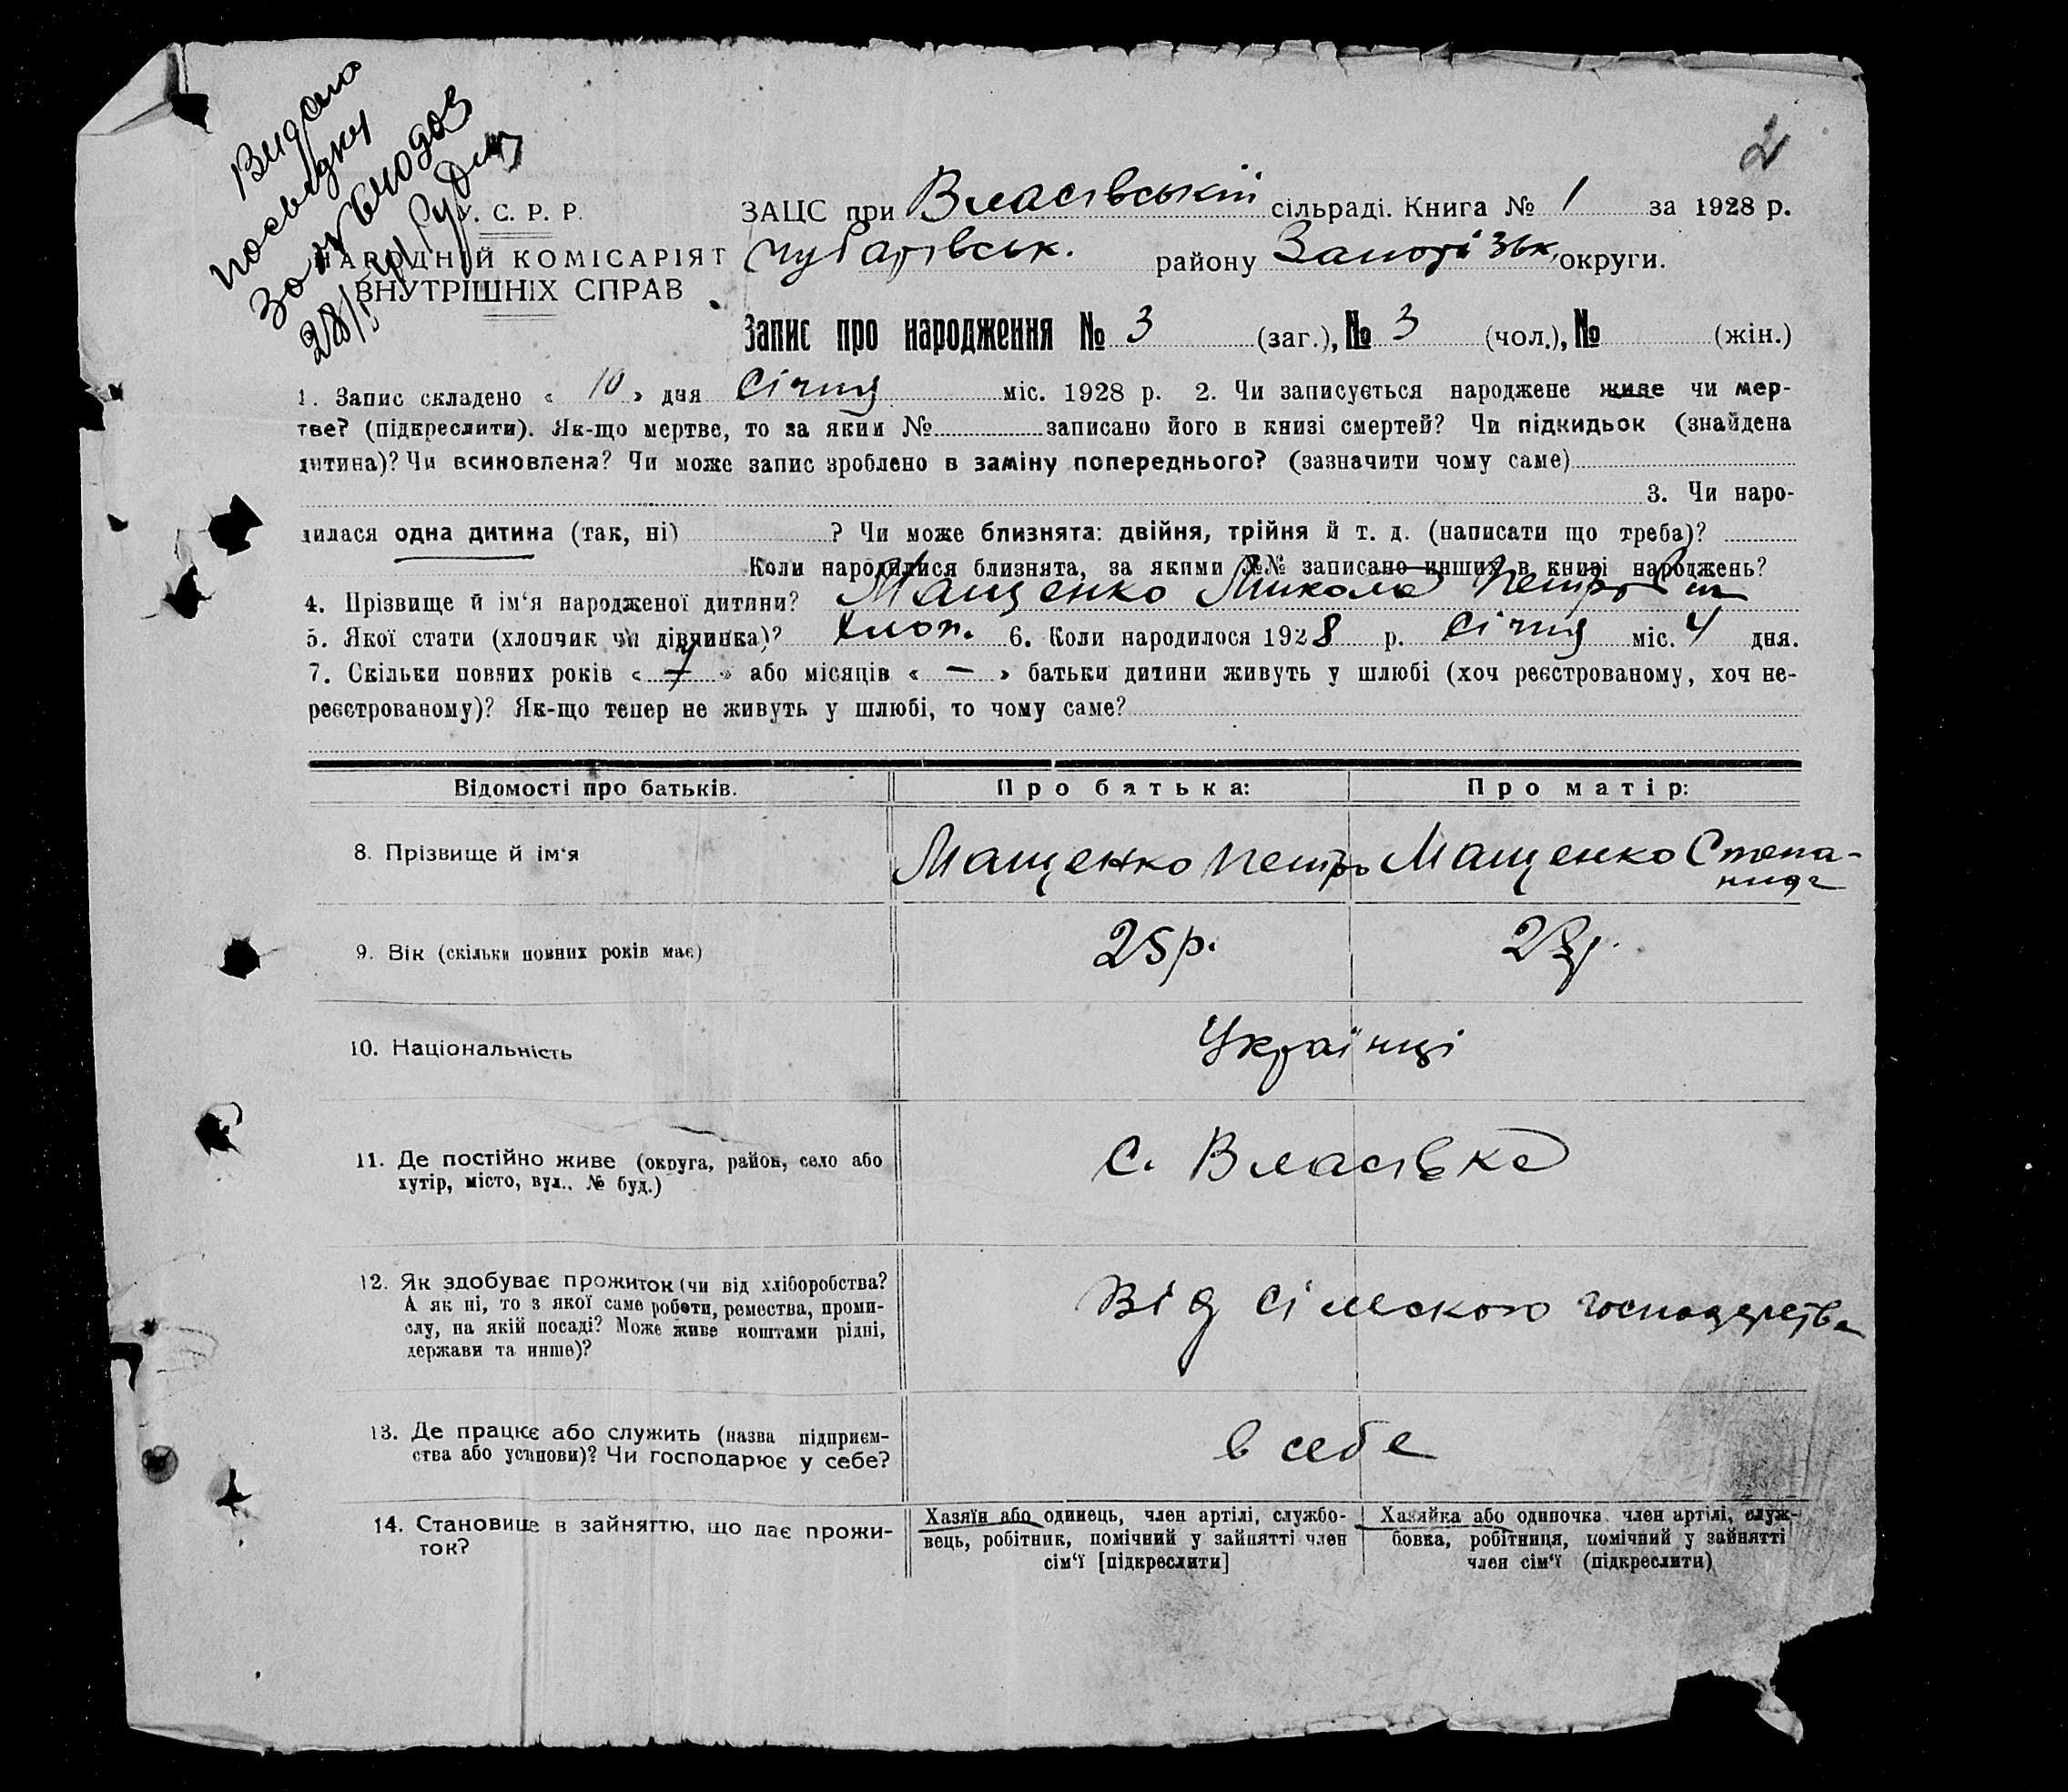 2
Видана
посвідку
У. С. Р. Р.
НАРОДНІЙ КОМІСАРІЯТ
ВНУТРІШНІХ СПРАВ
ЗАЦС при Власівській сільраді. Книга № 1 за 1928 р.
Чубарівськ. району Запорізьк. округи.
Запис про народження № 3 (заг.), № 3 (чол.), № (жін.)
1. Запис складено « 10 » дня Січня міс. 1928 р. 2. Чи записується народжене живе чи мер-
тве? (підкреслити). Як-що мертве, то за яким № записано його в книзі смертей? Чи підкидьок (знайдена
дитина)? Чи всиновлена? Чи може запис зроблено в заміну попереднього? (зазначити чому саме)
3. Чи наро-
дилася одна дитина (так, ні) ? Чи може близнята: двійня, трійня й т. д. (написати що треба)?
Коли народилися близнята, за якими №№ записано инших в книзі народжень?
4. Прізвище й ім‘я народженої дитини? Мащенко Микола Петрович
5. Якої стати (хлопчик чи дівчинка)? Хлоп. 6. Коли народилося 1928 р. Січня міс. 4 дня.
7. Скільки повних років « 7 » або місяців « — » батьки дитини живуть у шлюбі (хоч реєстрованому, хоч не-
реєстрованому)? Як-що тепер не живуть у шлюбі, то чому саме?
Відомості про батьків. Про батька: Про матір:
8. Прізвище й ім‘я Мащенко Петро Мащенко Степа-
нида
9. Вік (скільки повних років має) 25 р.
10. Національність Українці
11. Де постійно живе (округа, район, село або
хутір, місто, вул., № буд.) с. Власівка
12. Як здобуває прожиток (чи від хліборобства?
А як ні, то з якої саме роботи, ремества, проми-
слу, на якій посаді? Може живе коштами рідні,
держави та инше)? Від сільского господарства
13. Де працює або служить (назва підприєм-
ства або установи)? Чи господарює у себе? в себе
14. Становище в зайняттю, що дає прожи-
ток?
Хазяїн або одинець, член артілі, службо-
вець, робітник, помічний у зайнятті член
сім‘ї [підкреслити]
Хазяйка або одиночка, член артілі, служ-
бовка, робітниця, помічний у зайнятті
член сім‘ї (підкреслити)